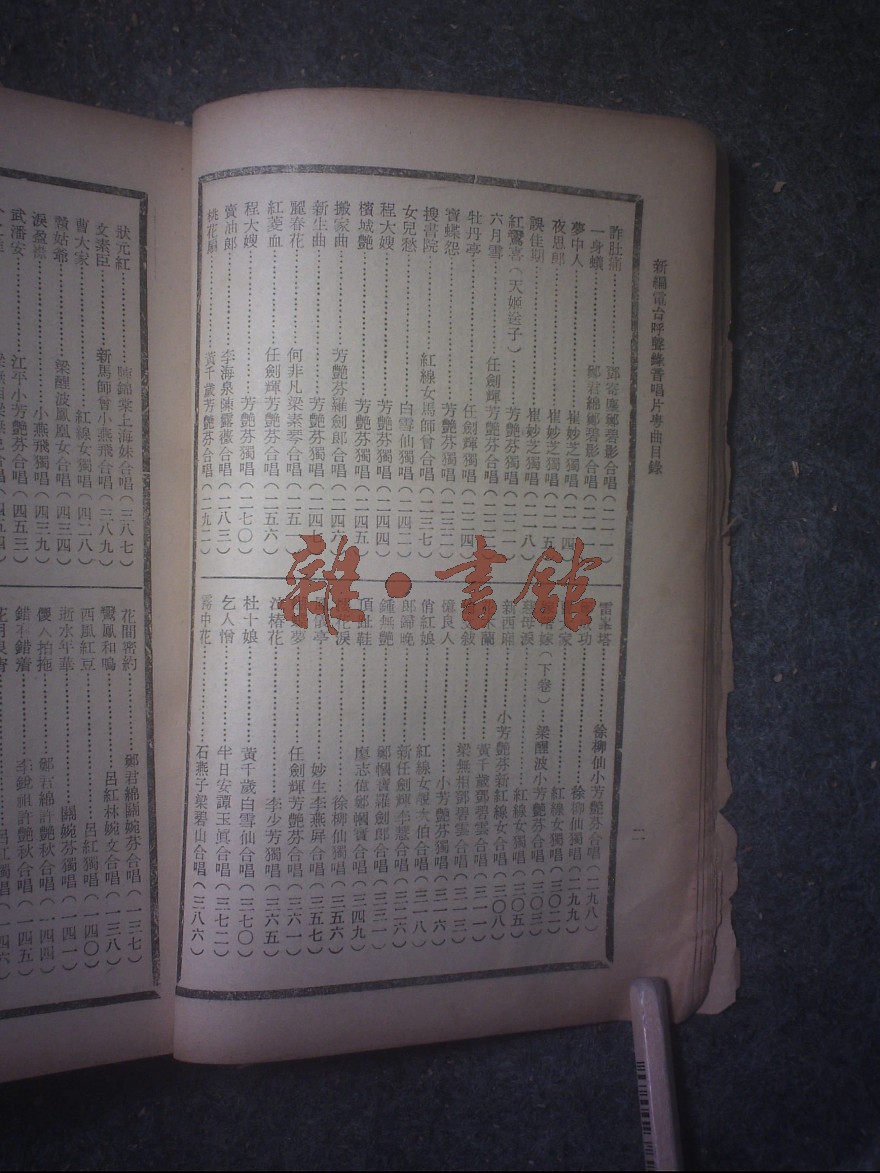 新編電台呼聲錄音唱片粵曲目錄
二
昨肚痛…………鄧寄塵鄭碧影合唱(二一
一身蟻…………鄭君綿鄭碧影合唱(二一
夢中人…………崔妙芝獨唱(二一四
夜思郎…………崔妙芝獨唱(二一五
誤佳期…………崔妙芝獨唱(二一八)
紅鸞喜(天姬送子)…………芳艷芬獨唱(二二一)
六月雪…………任劍輝芳艷芬合唱(二二
牡丹亭…………任劍輝獨唱(二二四)
寶蝶怨…………芳艷芬獨唱(二三二)
搜書院…………紅線女馬師曾合唱(二三七)
女兒愁…………白雪仙獨唱(二四二)
程大嫂…………芳艷芬獨唱(二四四)
檳城艷…………芳艷芬獨唱(二四五)
搬家曲…………芳艷芬羅劍郎合唱(二四六
新生曲…………芳艷芬獨唱(二四七
麗春花…………何非凡梁素琴合唱(二五
紅菱血…………任劍輝芳艷芬合唱(二五六)
程大嫂…………芳艷芬獨唱(二七〇)
賣油郎…………李海泉陳露薇合唱(二八三)
桃花扇…………黃千歲芳艷芬合唱(二九二)
雷峯塔…………徐柳仙小芳艷芬合唱(二九八)
功…………徐柳仙獨唱(二九九)
家…………紅線女獨唱(三〇二)
嫁(下卷)…………梁醒波小芳艷芬合唱(三〇三)
慈母淚…………紅線女獨唱(三〇五)
新西廂…………小芳艷芬新紅線女合唱(三〇八)
木蘭…………黃千歲鄧碧雲合唱(三一一)
敍…………梁無相鄧碧雲合唱(三一三)
憶良人…………小芳艷芬獨唱(三一六)
俏紅娘…………紅線女 伯合唱(三一八)
郎歸晚…………新任劍輝李慧合唱(三二六)
鍾無艷…………鄭幗寶羅劍郎合唱(三三一)
頂趾鞋…………廖志偉鄭幗寶合唱(三四九)
花淚…………徐柳仙獨唱(三五六)
儀亭…………妙生李燕屏合唱(三五七)
夢…………任劍輝芳艷芬合唱(三六一)
椿花…………李少芳獨唱(三六五)
杜十娘…………黃千歲白雪仙合唱(三七〇)
乞人僧…………半日安譚玉眞合唱(三七二)
露中花…………石燕子梁碧山合唱(三八六)
狀元紅…………陳錦棠上海妹合唱(三八七)
文素臣…………新馬師曾小燕飛合唱(三八九)
曹大家…………紅線女獨唱(四二八)
贅姑爺…………梁醒波鳳凰女合唱(四三四)
淚盈襟…………小燕飛獨唱(四三九)
武潘安…………江平小芳艷芬合唱(四五三)
花間密約…………鄭君綿關婉芬合唱(一三七)
鸞鳳和鳴…………呂紅林婉文合唱(一三八)
西風紅豆…………呂紅獨唱(一四〇)
逝水年華…………關婉芬獨唱(一四一)
儍人拍拖…………鄭君綿許艷秋合唱(一四四)
錯有錯着…………李銳祖許艷秋合唱(一四五)
呂紅獨唱(一四六)
雜·書館